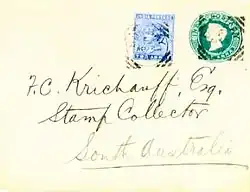 INDIA POSTAGE
F. C. Krichauff, Esq.
Stamp Collector
South Australia